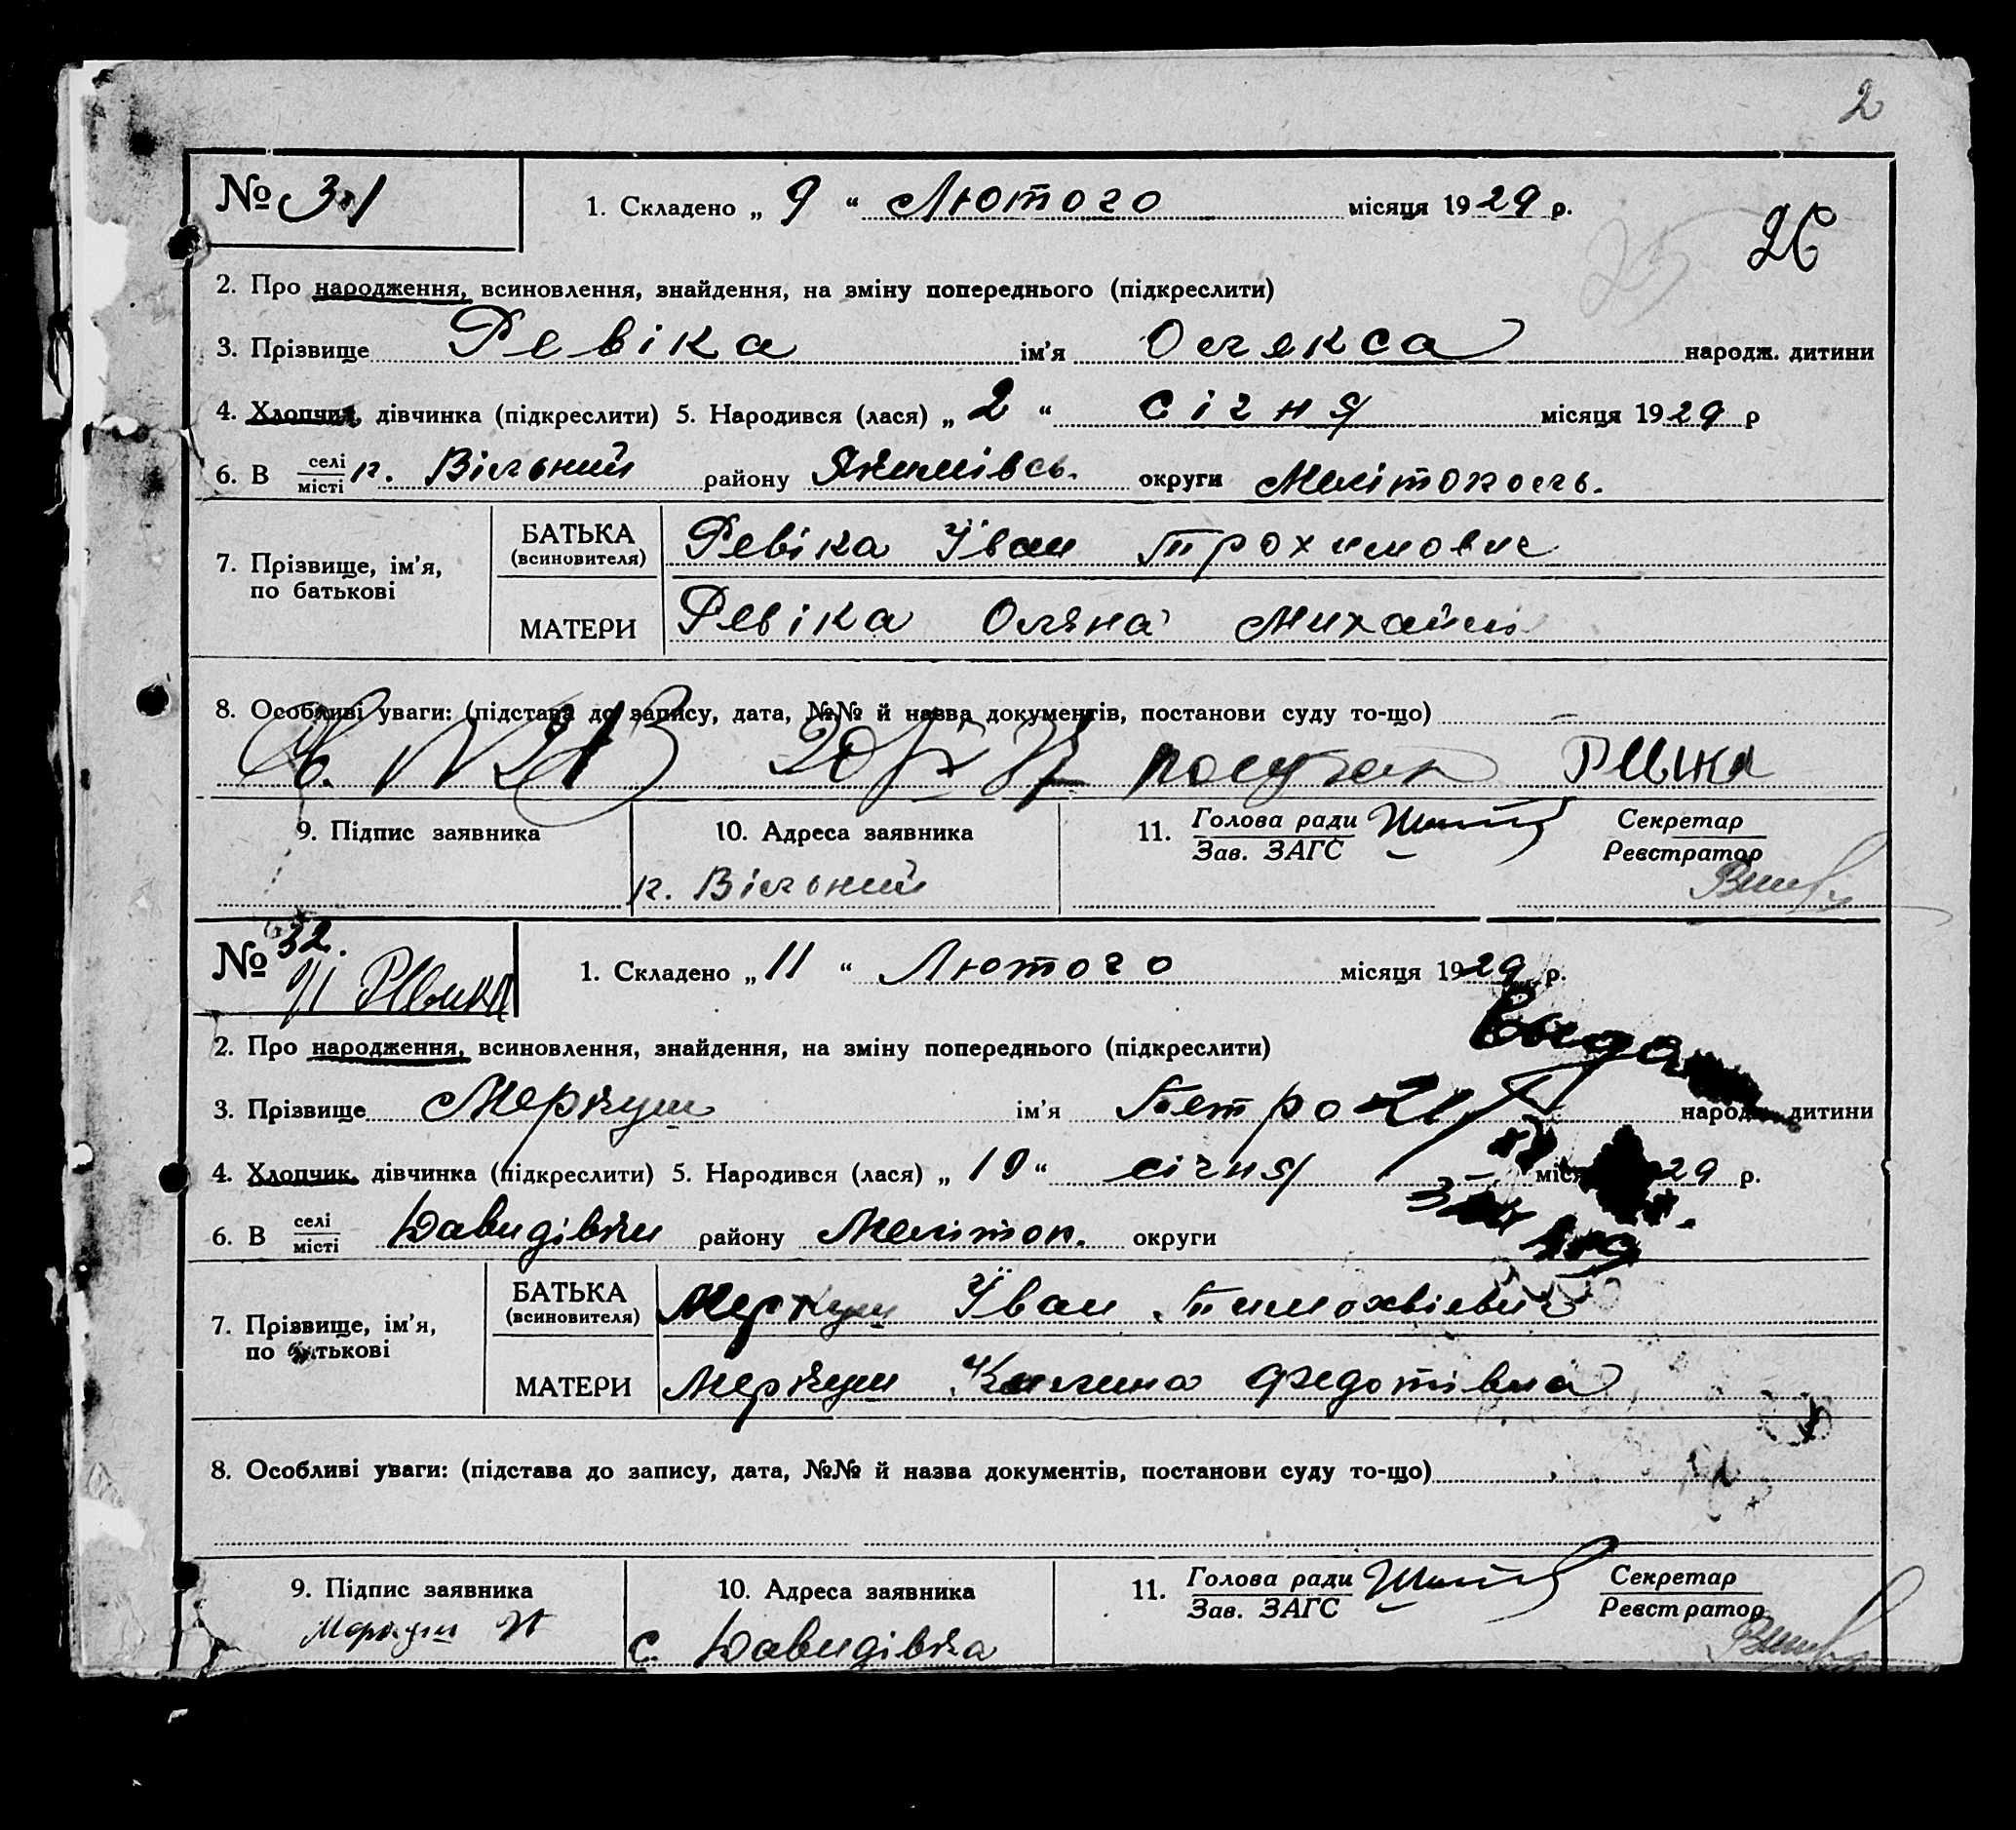 2
№ 31
1. Складено „ 9 “ Лютого місяця 1929 р.
26
25
2. Про народження, всиновлення, знайдення, на зміну попереднього (підкреслити)
3. Прізвище Ревіка ім’я Олекса народж. дитини
4. Хлопчик, дівчинка (підкреслити) 5. Народився (лася) „ 2 “ січня місяця 1929 р
6. В селі місті х. Вільний району Якимівсь. округи Мелітопольсь.
7. Прізвище, ім’я, по батькові
БАТЬКА (всиновителя) Ревіка Іван Трохимович
МАТЕРИ Ревіка Оляна Михайлі
8. Особливі уваги: (підстава до запису, дата, №№ й назва документів, постанови суду то-що)
получил Ревика
9. Підпис заявника
10. Адреса заявника
х. Вільний
11. Голова ради
Зав. ЗАГС
Секретар
Реєстратор
№ 32.
Ревика
1. Складено „ 11 “ Лютого місяця 1929 р.
2. Про народження, всиновлення, знайдення, на зміну попереднього (підкреслити)
3. Прізвище Меркуш ім’я Петро народж. дитини
4. Хлопчик, дівчинка (підкреслити) 5. Народився (лася) „ 10 “ січня 29 р.
6. В селі місті Давидівки району Мелітоп. округи
7. Прізвище, ім’я, по батькові
БАТЬКА (всиновителя) Меркуш Іван Тимохвієвич
МАТЕРИ Меркуш Килина Федотівна
8. Особливі уваги: (підстава до запису, дата, №№ й назва документів, постанови суду то-що)
9. Підпис заявника
Меркуш И
10. Адреса заявника
с. Давидівка
11. Голова ради
Зав. ЗАГС
Секретар
Реєстратор